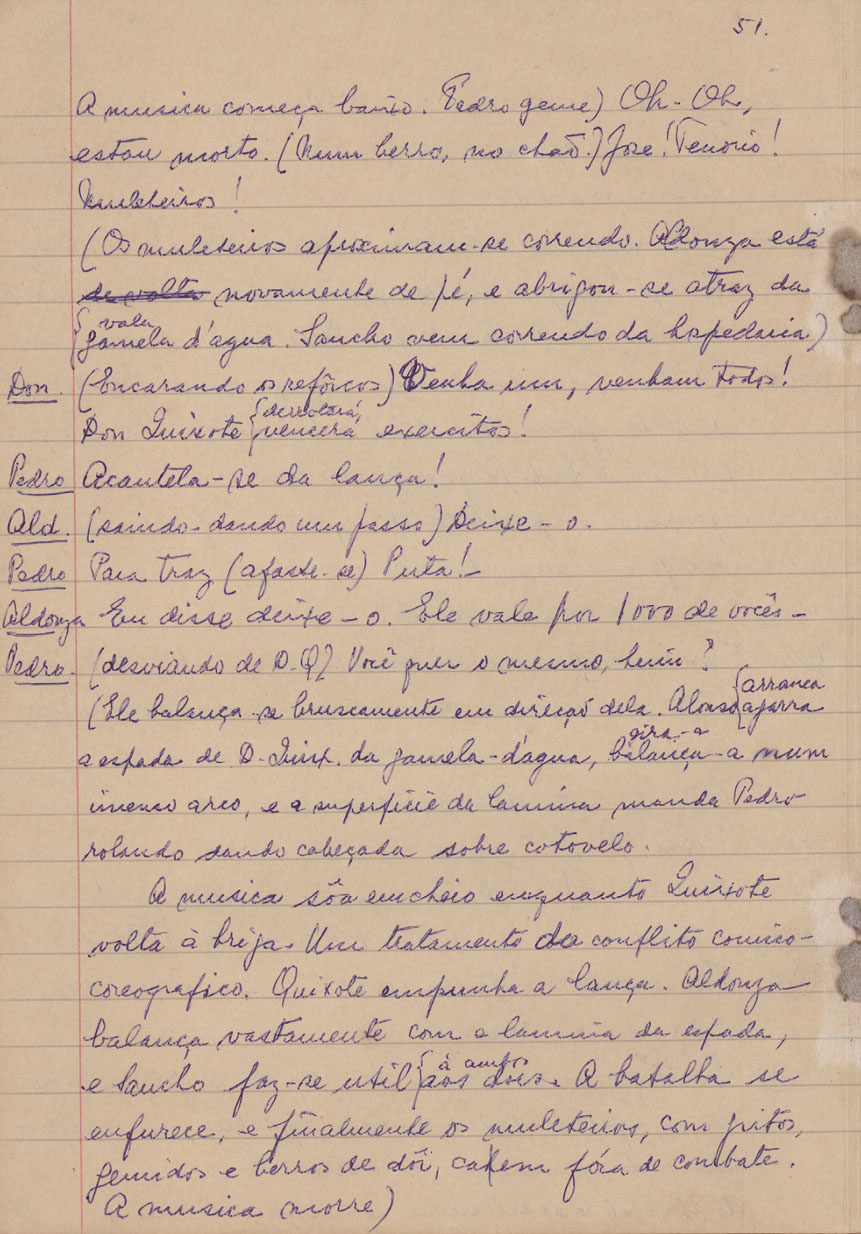 51.
A musica começa baixo. Pedro geme) Oh - Oh,
estou morto. (Num berro, no chaõ.) Jose! Tenorio!
Muleteiros!
(Os muleteiros aproximam-se correndo. Aldonza está
de volta novamente de pé, e abrigou-se atraz da
vala
{gamela d'agua. Sancho vem correndo da hospedaria)
Don. (Encarando os reforços) Venha um, venham todos!
{derrotará,
Don Quixote {vencerá exercitos!
Pedro Acautela-se da lança!
Ald. (saindo-dando um passo) Deixe-o.
Pedro Para traz (afaste-se) Puta!-
Aldonza Eu disse deixe-o. Ele vale por 1000 de vocês-
Pedro. (desviando de D.Q) Você quer o mesmo, hein?
{arranca
(Ele balança-se bruscamente em direçaõ dela. Alonso {agarra
gira-a
a espada de D. Quix. da gamela-d'agua, balança-a num
imenso arco, e a superficie da lamina manda Pedro
rolando dando cabeçada sobre cotovelo.
A musica sôa em cheio enquanto Quixote
volta à briga. Um tratamento do conflito comico-
coreografico. Quixote empunha a lança. Aldonza
balança vastamente com a lamina da espada,
à ambos
e Sancho faz-se util {aos dois. A batalha se
enfurece, e finalmente os muleteiros, com gritos,
gemidos e berros de dôr, caem fóra de combate.
A musica morre)